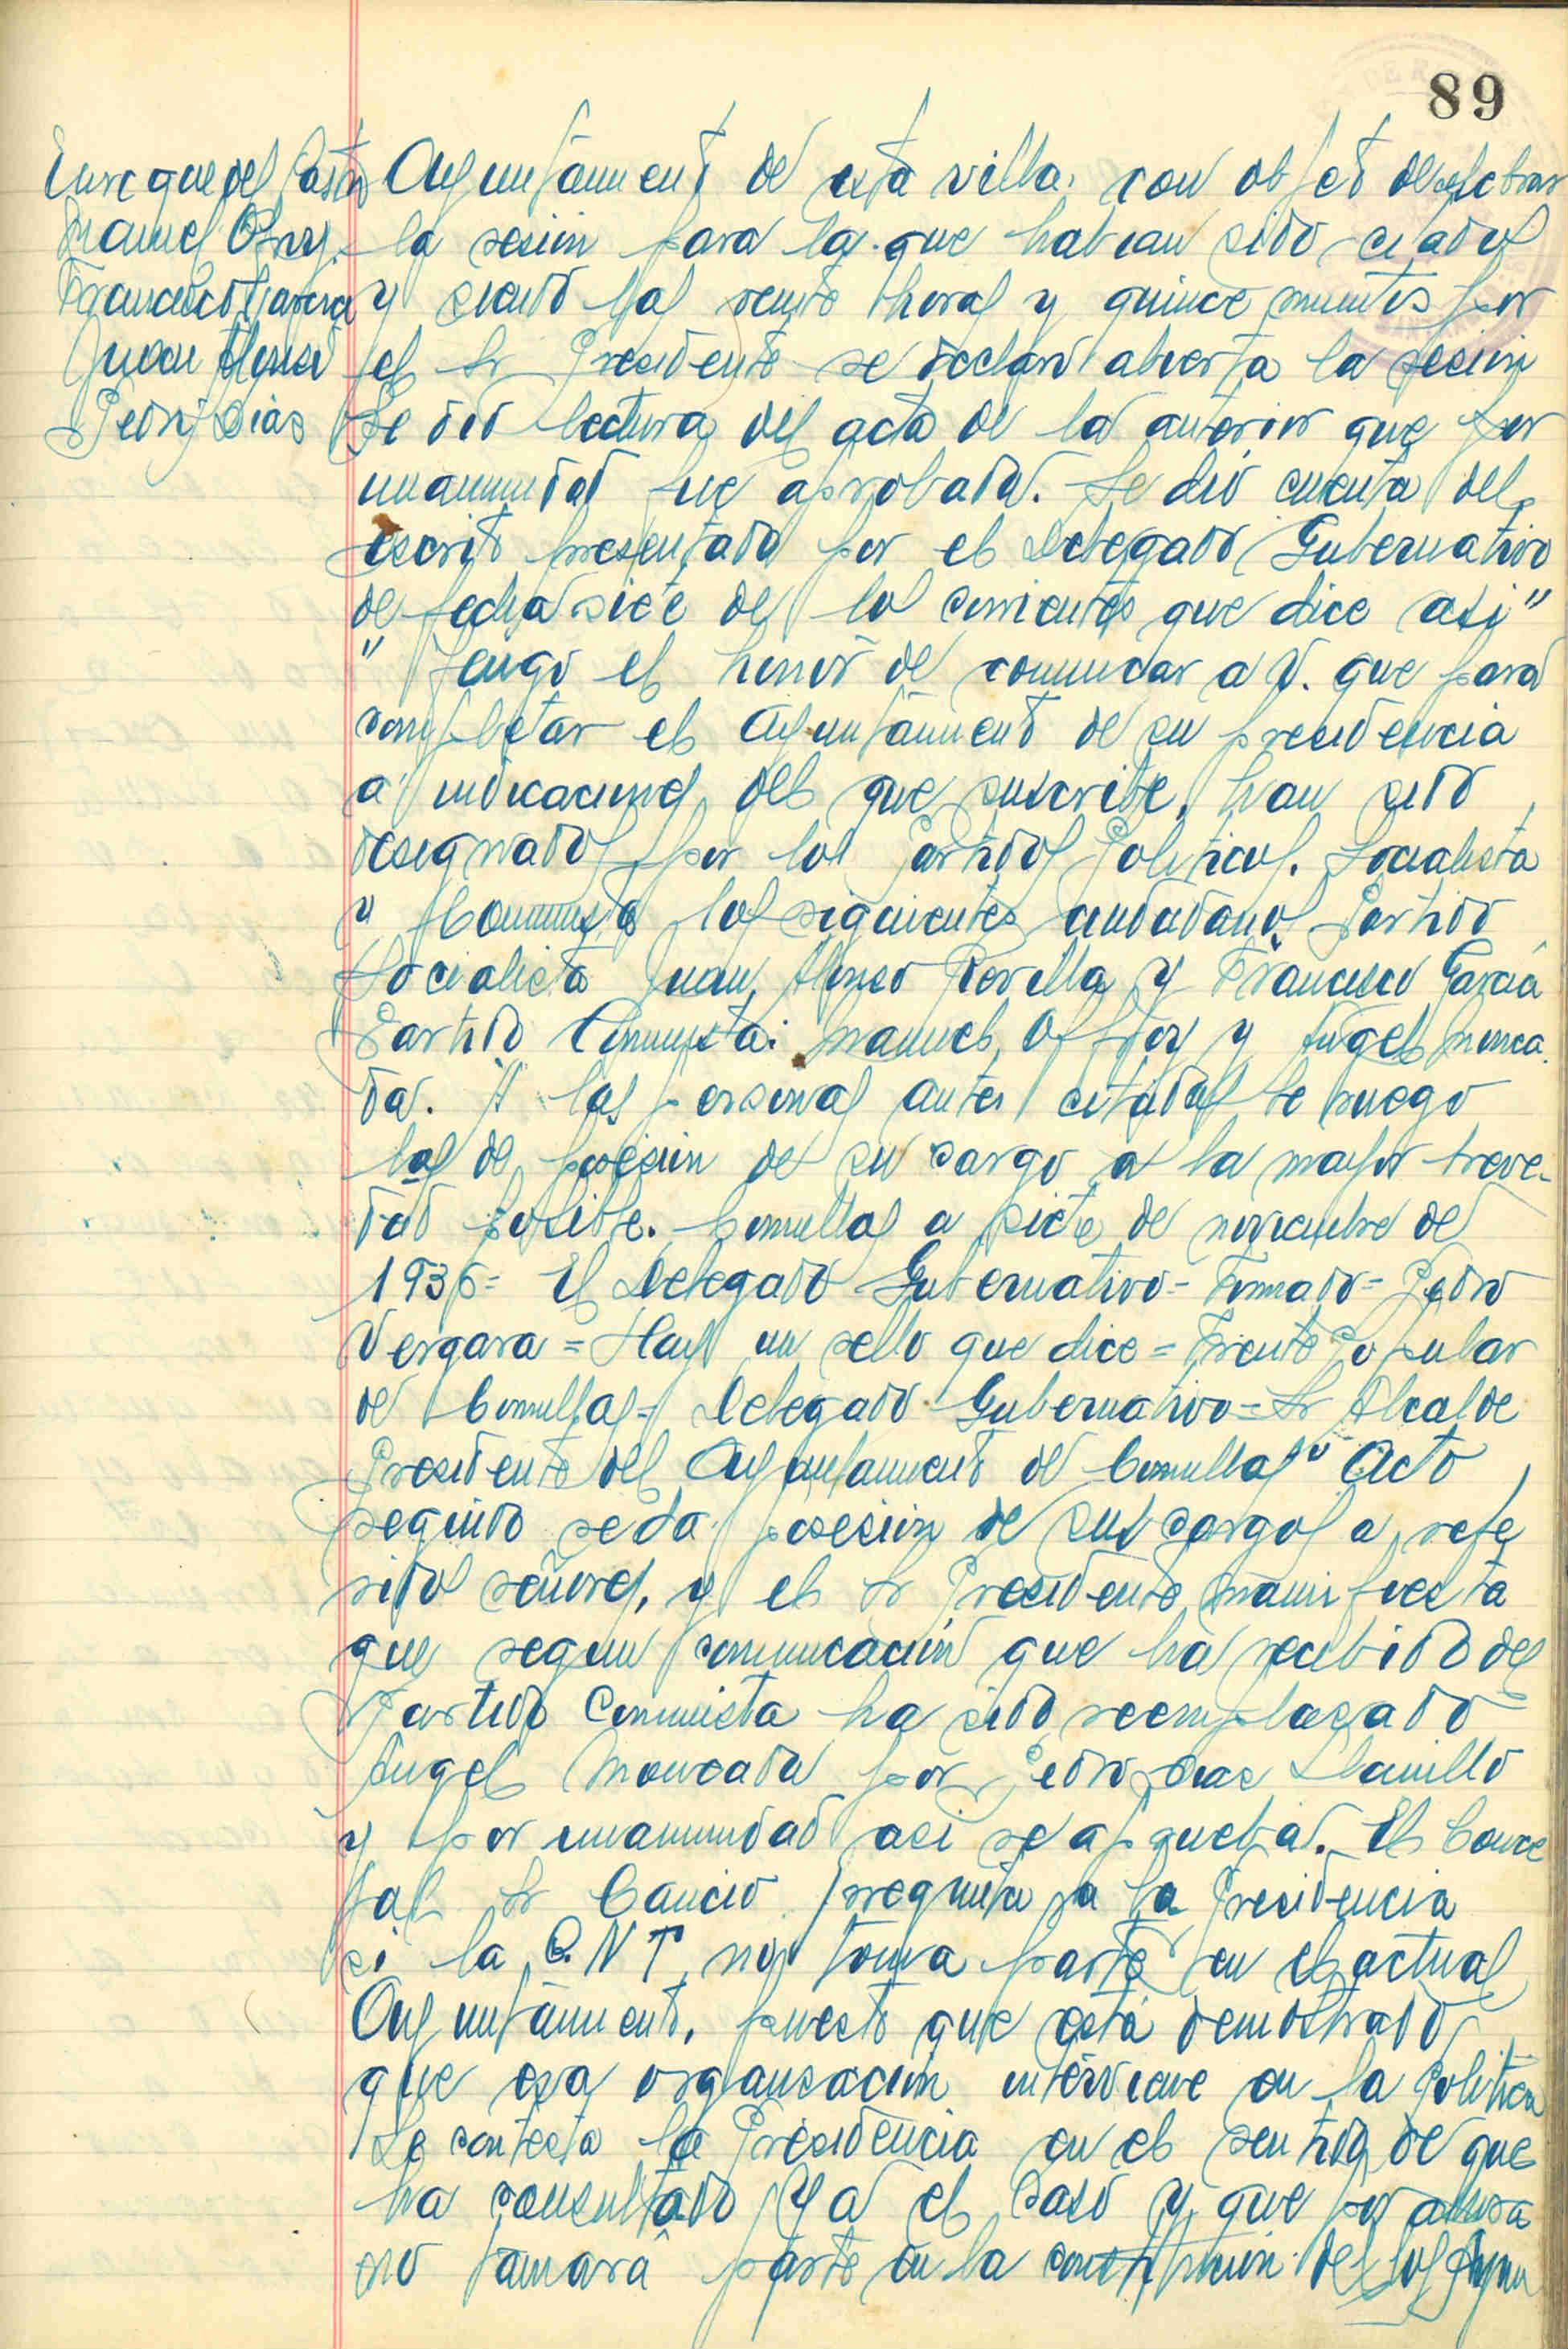 89
Enrique del Castro
Manuel
Francisco Garcia
Juan Alonso
Pedro Dias
Ayuntamiento de esta villa, con objeto de celebrar
la sesión para la que habian sido citados
y siendo las veinte horas y quince minutos por
el Sr Presidente se declaró abierta la sesión
Se dió lectura del acta de la anterior que por
unanimidad fue aprobada. Se dió cuenta del
escrito presentado por el Delegado Gubernativo
de fecha siete de los corrientes que dice asi"
" Tengo el honor de comunicar a V. que para
completar el Ayuntamiento de su presidencia
a indicaciones del que suscribe, han sido
designados por los Partidos Politicos. Socialista
y Comunista los siguientes ciudadanos Partido
Socialista Juan Alonso Revilla y Francisco Garcia
Partido Comunista: Manuel y Angel Monca
da. A las personas antes citadas le ruego
las de posesión de su cargo a la mayor breve-
dad posible. Comillas a siete de noviembre de
1936= El Delegado Gubernativo= Firmado= Pedro
Vergara = Hay un sello que dice = Frente Popular
de Comillas= Delegado Gubernativo= Sr Alcalde
Presidente del Ayuntamiento de Comillas" Acto
seguido se da posesión de sus cargos a refe
ridos señores, y el Sr Presidente manifiesta
que segun comunicación que ha recibido del
Partido Comunista ha sido reemplazado
Angel Moncada por Pedro Dias Llanillo
y por unanimidad asi se aprueba. El Conce
jal Sr Cancio pregunta a la Presidencia
si la C.N T no toma parte en el actual
Ayuntamiento, puesto que está demostrado
que esa organización interviene en la Politica
Le contesta la Presidencia en el sentido de que
ha consultado ya el caso y que por ahora
no tomara parte en la constitución de los Ayun